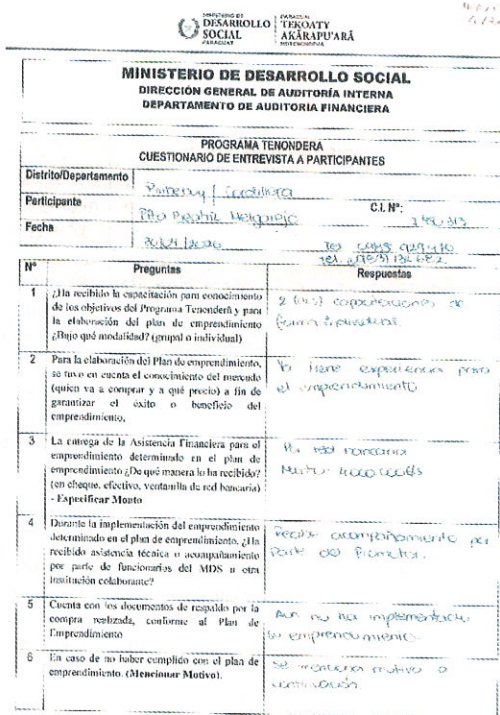 MINISTERIO DE
DESARROLLO
SOCIAL
PARAGUAY
PARAGUÁI
TEKOATY
AKÃRAPU'ARÃ
MOTENONDEHA
MINISTERIO DE DESARROLLO SOCIAL
DIRECCIÓN GENERAL DE AUDITORÍA INTERNA
DEPARTAMENTO DE AUDITORIA FINANCIERA
PROGRAMA TENONDERA
CUESTIONARIO DE ENTREVISTA A PARTICIPANTES
Distrito/Departamento
Cordillera
Participante
Beatriz Melgarejo
C.I. N°:
Fecha
Tel
Tel.
N° Preguntas Respuestas
1 ¿Ha recibido la capacitación para conocimiento
de los objetivos del Programa Tenonderã y para
la elaboración del plan de emprendimiento
¿Bajo qué modalidad? (grupal o individual)
2 (dos) capacitaciones de
forma individual.
2 Para la elaboración del Plan de emprendimiento,
se tuvo en cuenta el conocimiento del mercado
(quien va a comprar y a qué precio) a fin de
garantizar el éxito o beneficio del
emprendimiento.
Ya tiene experiencia para
el emprendimiento
3 La entrega de la Asistencia Financiera para el
emprendimiento determinado en el plan de
emprendimiento ¿De qué manera lo ha recibido?
(en cheque, efectivo, ventanilla de red bancaria)
- Especificar Monto
Por red bancaria
Monto: 4.000.000 Gs
4 Durante la implementación del emprendimiento
determinado en el plan de emprendimiento. ¿Ha
recibido asistencia técnica o acompañamiento
por parte de funcionarios del MDS u otra
institución colaborante?
Recibe acompañamiento por
parte del Promotor.
5 Cuenta con los documentos de respaldo por la
compra realizada, conforme al Plan de
Emprendimiento
Aun no ha implementado
su emprendimiento.
6 En caso de no haber cumplido con el plan de
emprendimiento. (Mencionar Motivo).
Se menciona motivo a
continuación